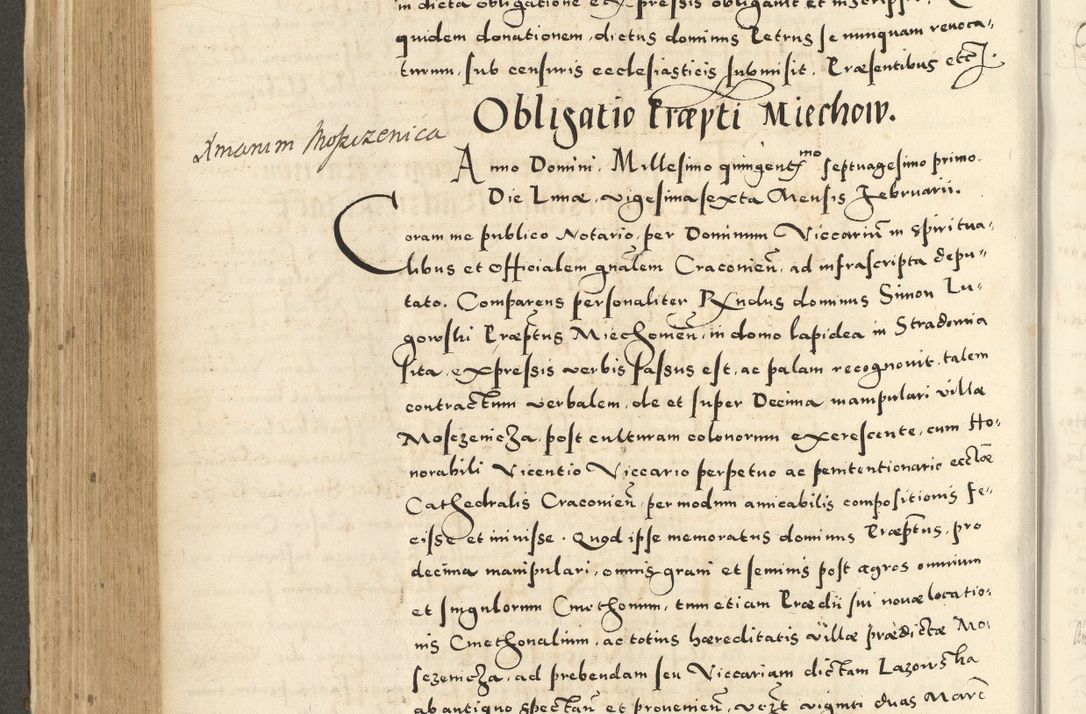 in dicta obligatione expressis obligavit et inscripsit.
quidem donationem, dictus dominus Petrus se nunquam revoca„
turum, sub censuris ecclesiasticis submisit. Præsentibus etc̃
Obligatio Præpti Miechow.
Moszczenica
Anno Domini, Millesimo quingentmo septuagesimo primo.
Die Lunæ, vigesima sexta Mensis Februarii.
Coram me publico Notario, per Dominum Viccariũ in spiritua„
libus et Officialem gnãlem Craconieñ, ad infrascripta depu„
tato. Comparens personaliter Rndus dominus Simon Lu„
gowski Præptus Miechouieñ, in domo lapidea in Stradomia
sita, expressis verbis fassus est, ac palam recognovit, talem
contractum verbalem, de et super Decima manipulari villæ
Mosczenicza, post culturam colonorum excrescente, cum Ho„
norabili Vicentio Viccario perpetuo ac penitentionario ecctæ
Cathedralis Craconieñ, per modum amicabilis compositionis fe„
cisse et inivisse. Quod ipse memoratus dominus Præptus, pro
decima manipulari, omnis grani et seminis post agros omnium
et singulorum Cmethonum, tum etiam Prædii sui novæ locatio„
nis Cmethonalium, ac totius hæreditatis villæ prædictæ Mo„
sczenicza, ad prebendam seu Viccariam dictam Lazowska
ab antiquo spectañ et provenieñ, viginti duas Marc̃